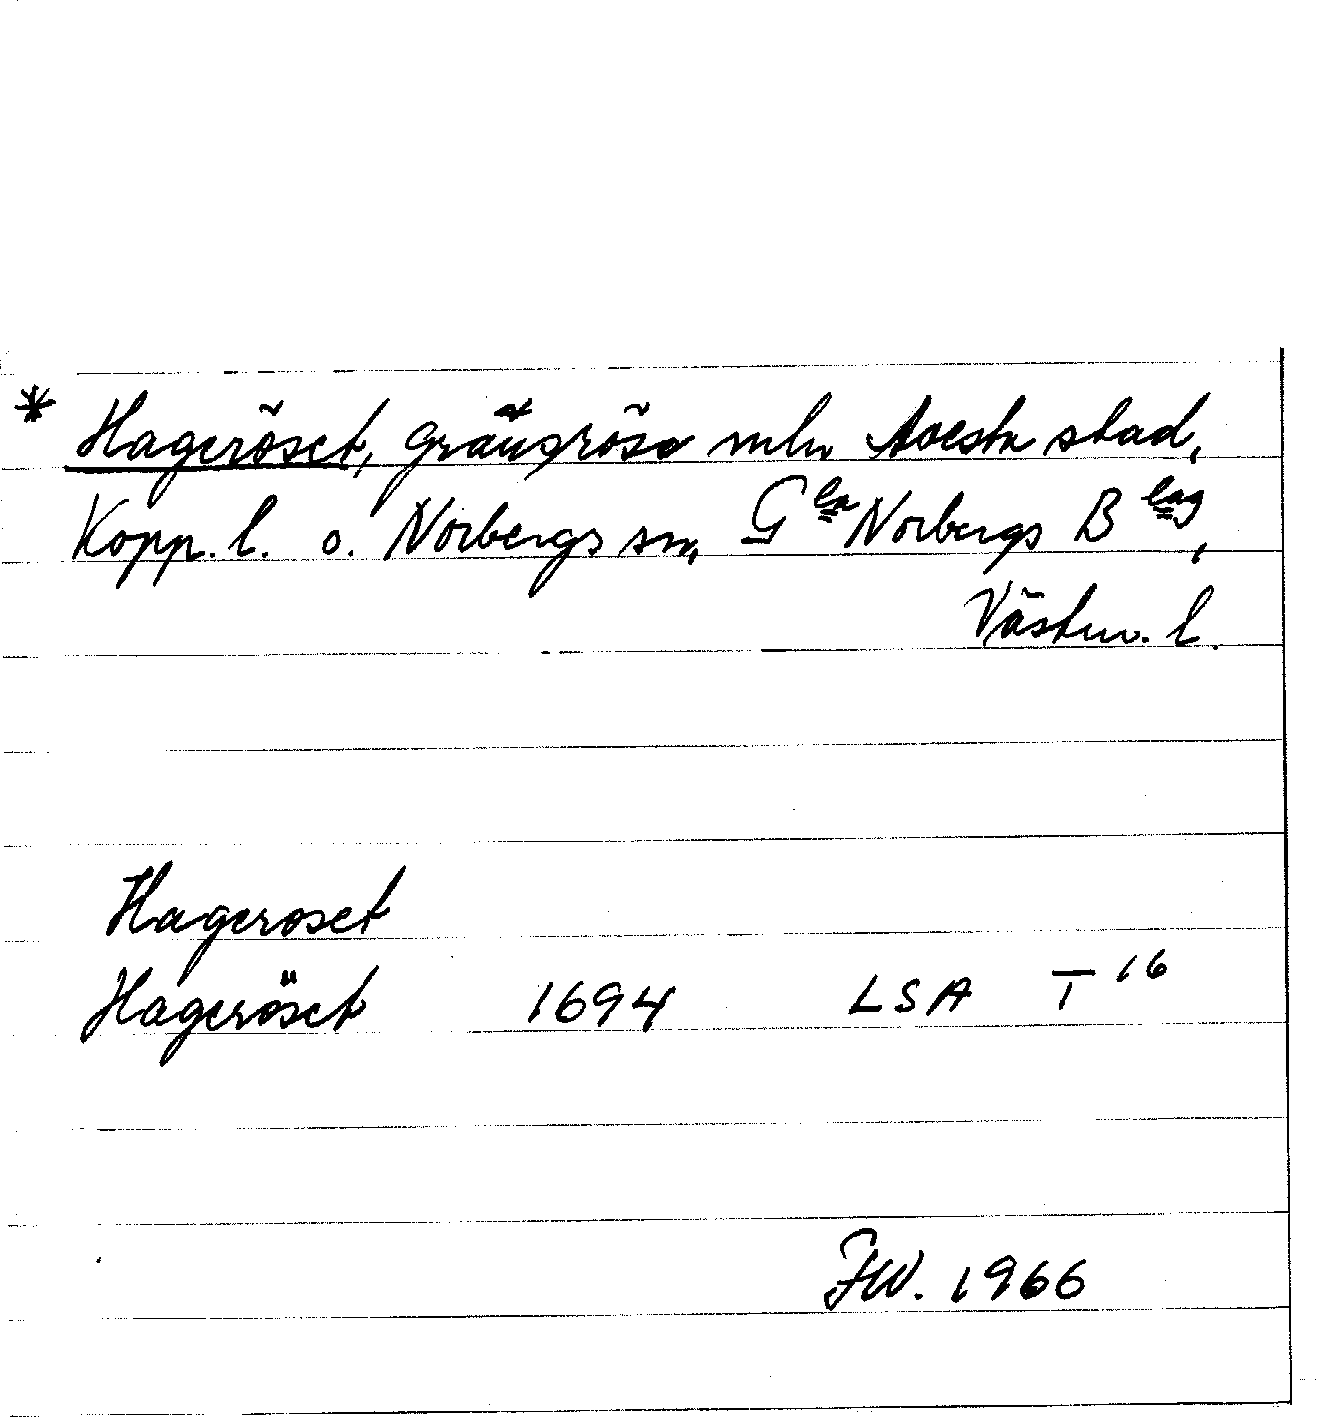 * Hageröset, gränsröse mln Avesta stad,
Kopp. l. o. Norbergs sn, Gla Norbergs Blag,
Västm. l.
Hageroset
Hageröset 1694 LSA T 16
JW. 1966